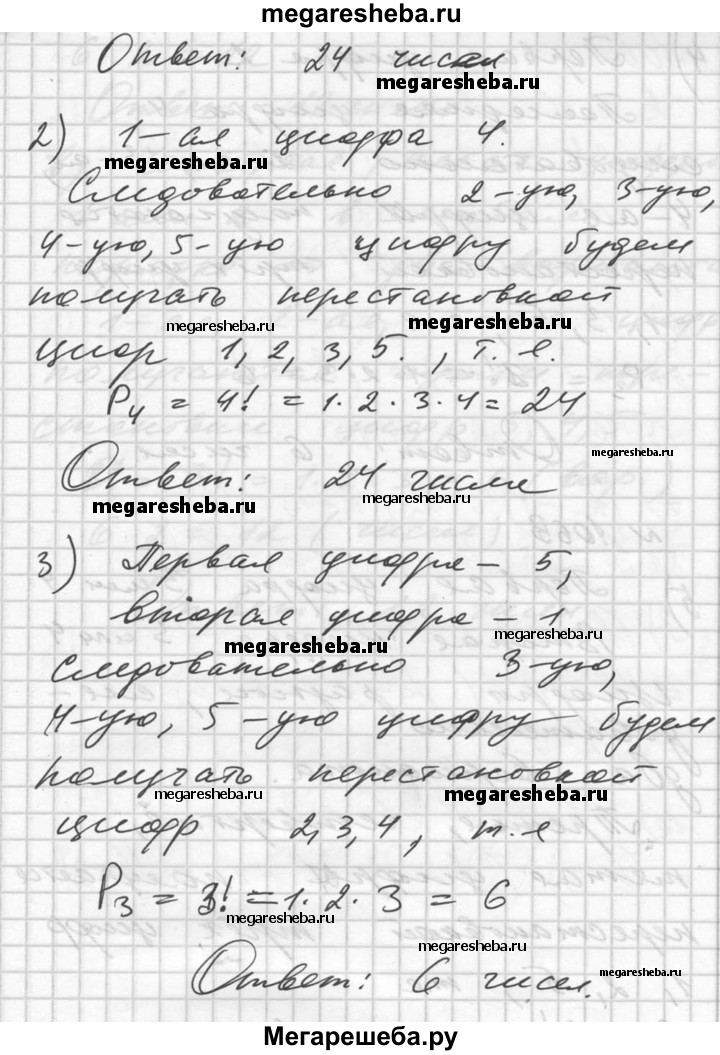 megaresheba.ru
Ответ: 24 чисел
megaresheba.ru
2) 1-ая цифра 4.
megaresheba.ru
Следовательно 2-ую, 3-ую,
4-ую, 5-ую цифру будем
получать перестановкой
megaresheba.ru megaresheba.ru
цифр 1, 2, 3, 5. , т. е.
P4 = 4! = 1·2·3·4 = 24
megaresheba.ru
Ответ: 24 числа
megaresheba.ru megaresheba.ru
3) Первая цифра – 5,
вторая цифра – 1
megaresheba.ru megaresheba.ru
следовательно 3-ую,
4-ую, 5-ую цифру будем
получать перестановкой
megaresheba.ru megaresheba.ru
цифр 2,3,4, т.е
P3 = 3! = 1·2·3 = 6
megaresheba.ru
megaresheba.ru
Ответ: 6 чисел.
megaresheba.ru
Мегарешеба.ру